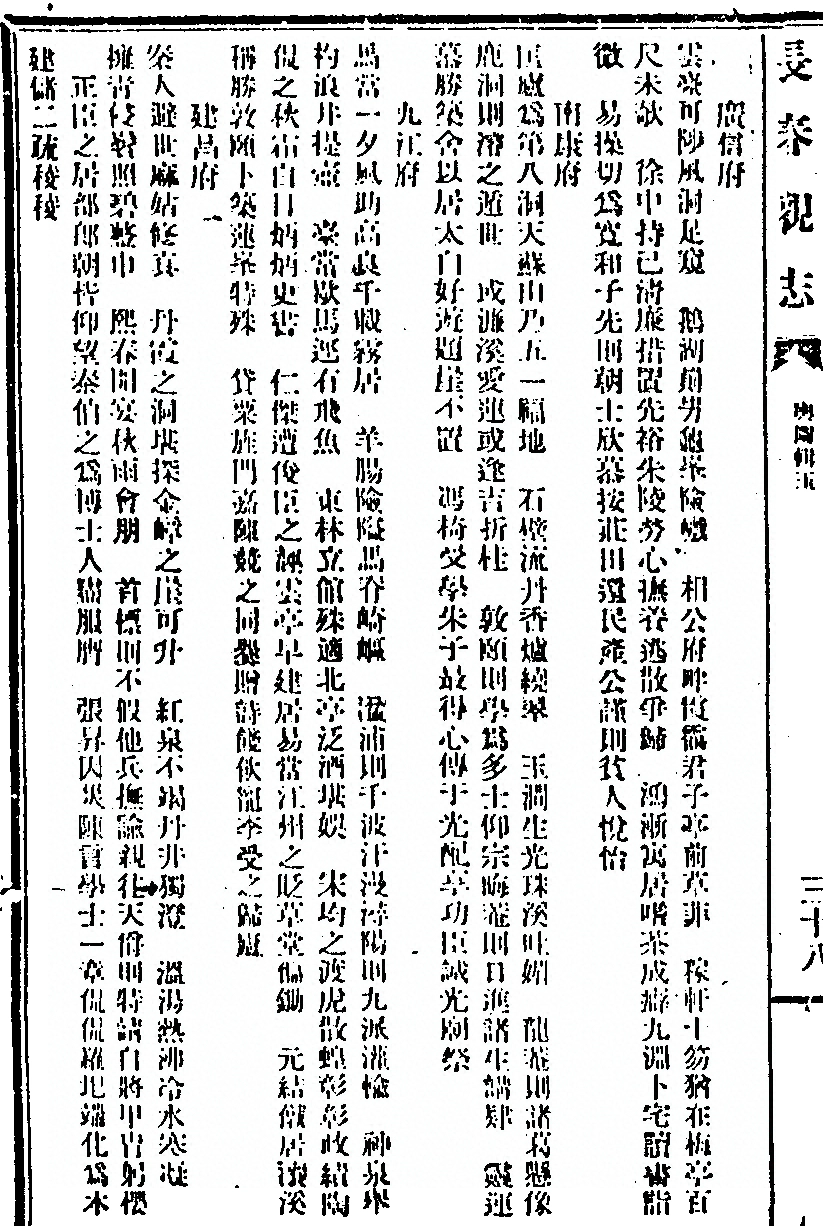 長春觀志 四
三十八
廣信府
雲臺可陟風洞足窺 鵝湖 險巇 相公府畔 君子亭前草菲 稼軒十笏猶在梅亭百
尺未欹 徐中持己清廉措置先裕朱陵勞心撫養逃散爭歸 鴻漸寓居嗜茶成癖九淵卜宅讀書
微 易操切爲寬和子先則朝士欣慕按莊田還民產公謹則貧人悅怡
南康府
匡廬爲第八洞天蘇山乃五一福地 石壁流丹香爐繞翠 玉澗生光珠溪吐媚 龍菴則諸葛懸像
鹿洞則 之遁世 或濂溪愛蓮或逢吉折桂 敦頤則學爲多士仰宗晦菴則日進諸生講肄 靈運
慕勝築舍以居太白好遊題崖不置 馮椅受學朱子最得心傳于光配享功臣誠光廟祭
九江府
馬當一夕風助高良千載霧居 羊腸險隘馬脊崎嶇 湓浦則千波汗漫潯陽則九派灌 神泉
杓浪井提壺 常歇馬 石飛魚 東林立館殊適北亭泛酒堪娛 宋均之渡虎散蝗彰彰政績陶
侃之秋霜白日炳炳史書 仁傑遭俊臣之誣雲亭早建居易當江州之貶草堂 鋤 元結僦居瀼溪
稱勝敦頤卜築蓮峯特殊 貸粟旌門嘉陳兢之同爨贈詩餞 寵李受之歸
建昌府
秦人避世麻姑修真 丹霞之洞堪探金嶂之崖可升 紅泉不竭丹井獨澄 溫湯熱沸冷水寒凝
擁書 照碧 巾 熙春開宴秋雨會朋 首標則不假他兵撫諭親往天爵則特請自將甲冑躬
正臣之居部郎朝皆仰望泰伯之爲博士人 服膺 張昇因災陳 學士一章侃侃羅玘 化爲本
建儲二疏稜稜